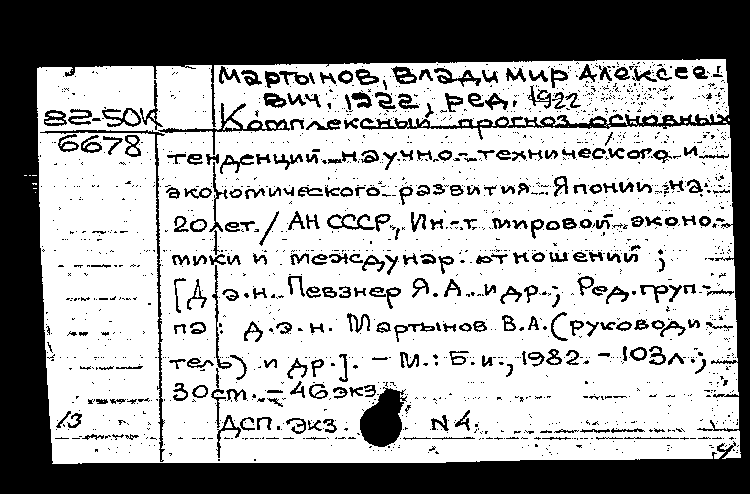 Мартынов, Владимир Алексее-
вич, 1922, ред. 1922
82-50К Комплексный прогноз основных
6678 тенденций научно-технического и
экономического развития Японии на
20 лет. / АН СССР, Ин-т мировой эконо-
мики и междунар. отношений ;
[Д.э.н. Певзнер Я.А. и др.; Ред. груп-
па : д.э.н. Мартынов В.А. (руководи-
тель) и др.]. - М.: Б.и., 1982. - 103 л.;
30 см. - 46 экз.
13 ДСП. Экз. N 4.